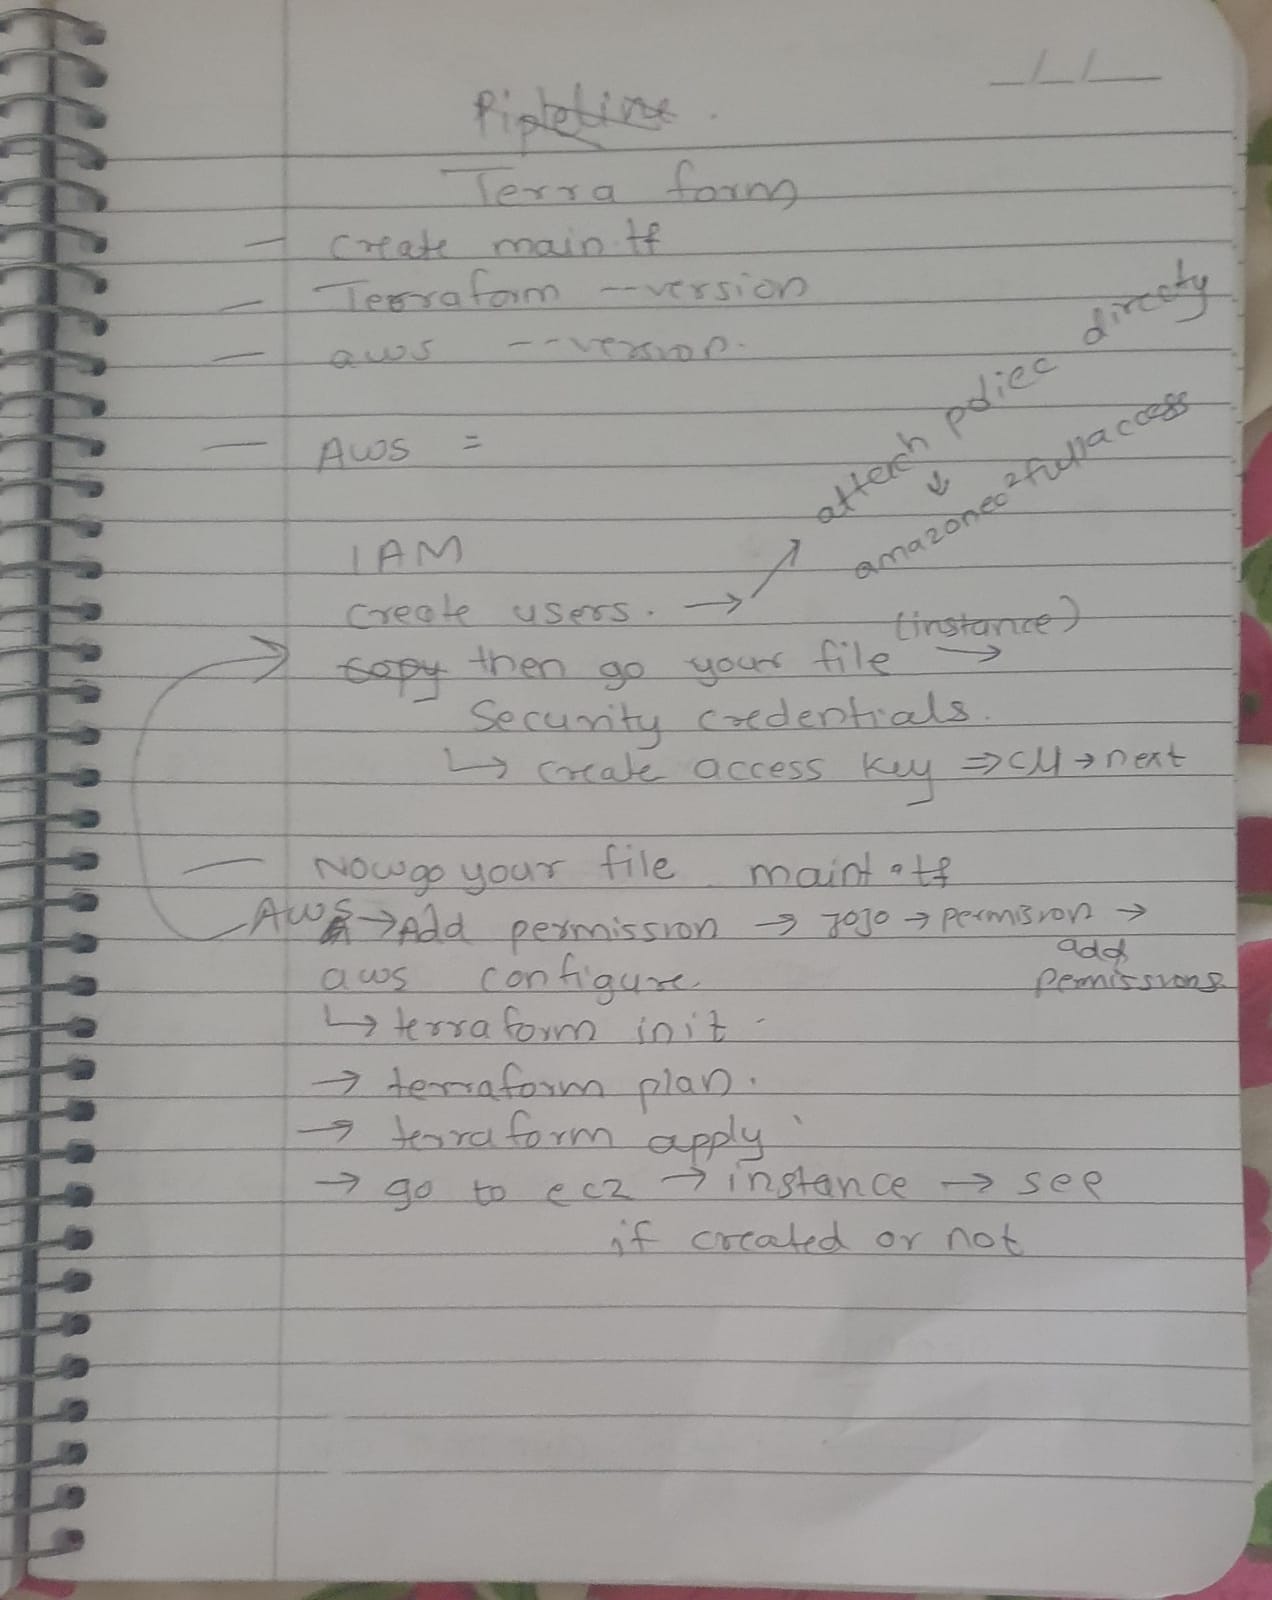 Pipleline.
Terra form
- create main.tf
- Terraform --version
- aws --version.
- AWS =
attech poliec directy
↓
amazonec2fullaccess
IAM
create users. →
(instance)
copy then go your file →
Security credentials.
↳ create access key ⇒ CLI → next
- Now go your file maint.tf
AWS → Add permission → JOJO → permission → add permissions
aws configure
↳ terraform init.
→ terraform plan.
→ terraform apply
→ go to ec2 → instance → see
if created or not